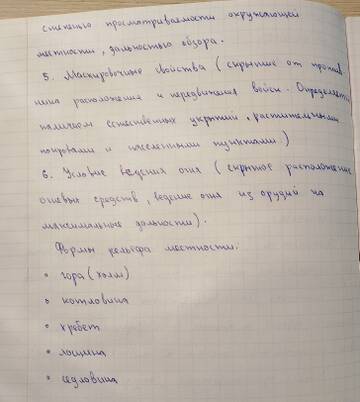 степенью просматриваемости окружающей
местности, дальностью обзора.
5. Маскировочные свойства (скрытие от против
ника расположения и передвижения войск. Определяется
наличием естественных укрытий, растительными
покровами и населенными пунктами.)
6. Условие ведения огня (скрытное расположение
огневых средств, ведение огня из орудий на
максимальные дальности).
Формы рельефа местности:
• гора (холм)
• котловина
• хребет
• лощина
• седловина